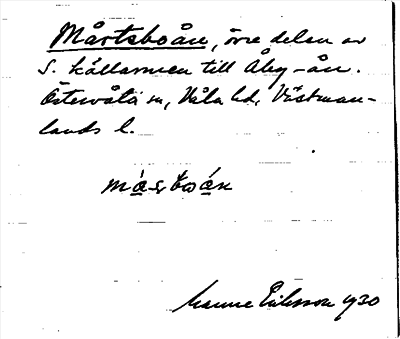 Mårtsboån, övre delen av
S. källarmen till Åby-ån.
Östervåla sn, Våla hd, Västman-
lands l.
må̀stboán
Hanna Eriksson 1930